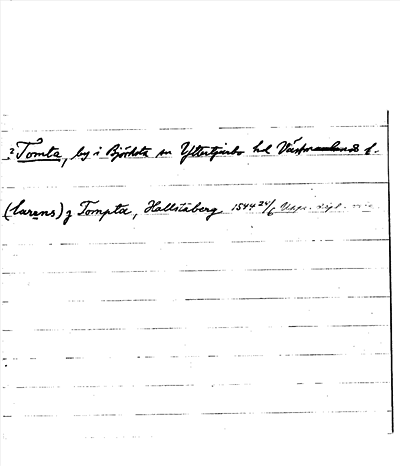 ? Tomta, by i Björksta sn Yttertjurbo hd Västmanlands l.
(larens) j Tompta, Hallstaberg 1544 24/6